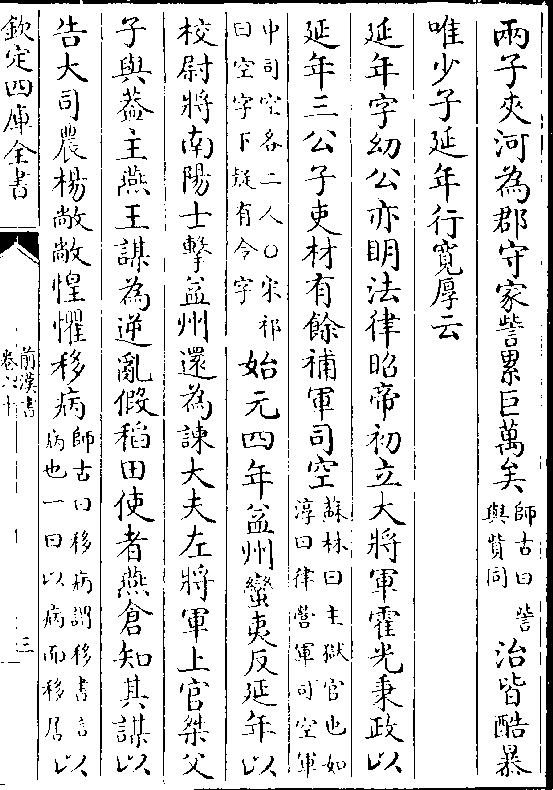 兩子夾河為郡守家訾累巨萬矣師古曰訾與貲同治皆酷暴
唯少子延年行寬厚云
延年字幼公亦明法律昭帝初立大將軍霍光秉政以
延年三公子吏材有餘補軍司空蘇林曰主獄官也如淳曰律營軍司空軍
中司空各二人○宋祁曰空字下疑有令字始元四年益州蠻夷反延年以
校尉將南陽士擊益州還為諫大夫左將軍上官桀父
子與蓋主燕王謀為逆亂假稻田使者燕倉知其謀以
告大司農楊敞敞惶懼移病師古曰移病謂移書言病也一曰以病而移居以
欽定四庫全書
前漢書
卷六十
三